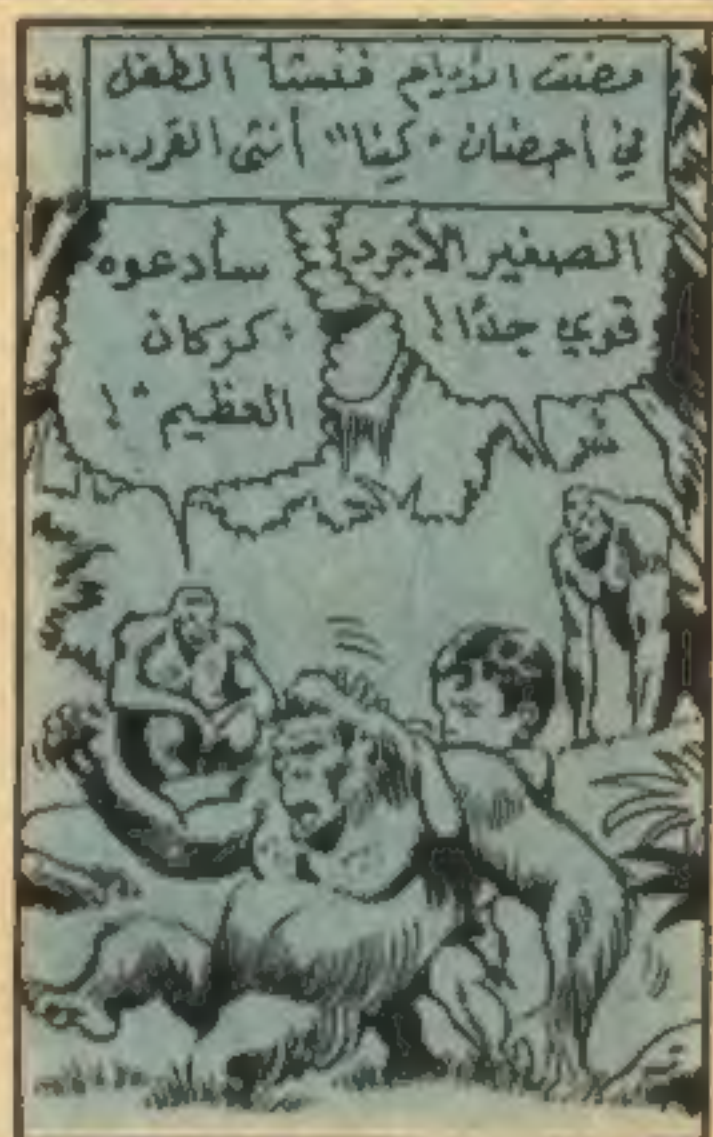 مضت الأيام فنشأ الطفل
في أحضان "كينا" أنثى القرد...
الصغير الأجرد
قوي جدًا!
سأدعوه
"كركان
العظيم"!